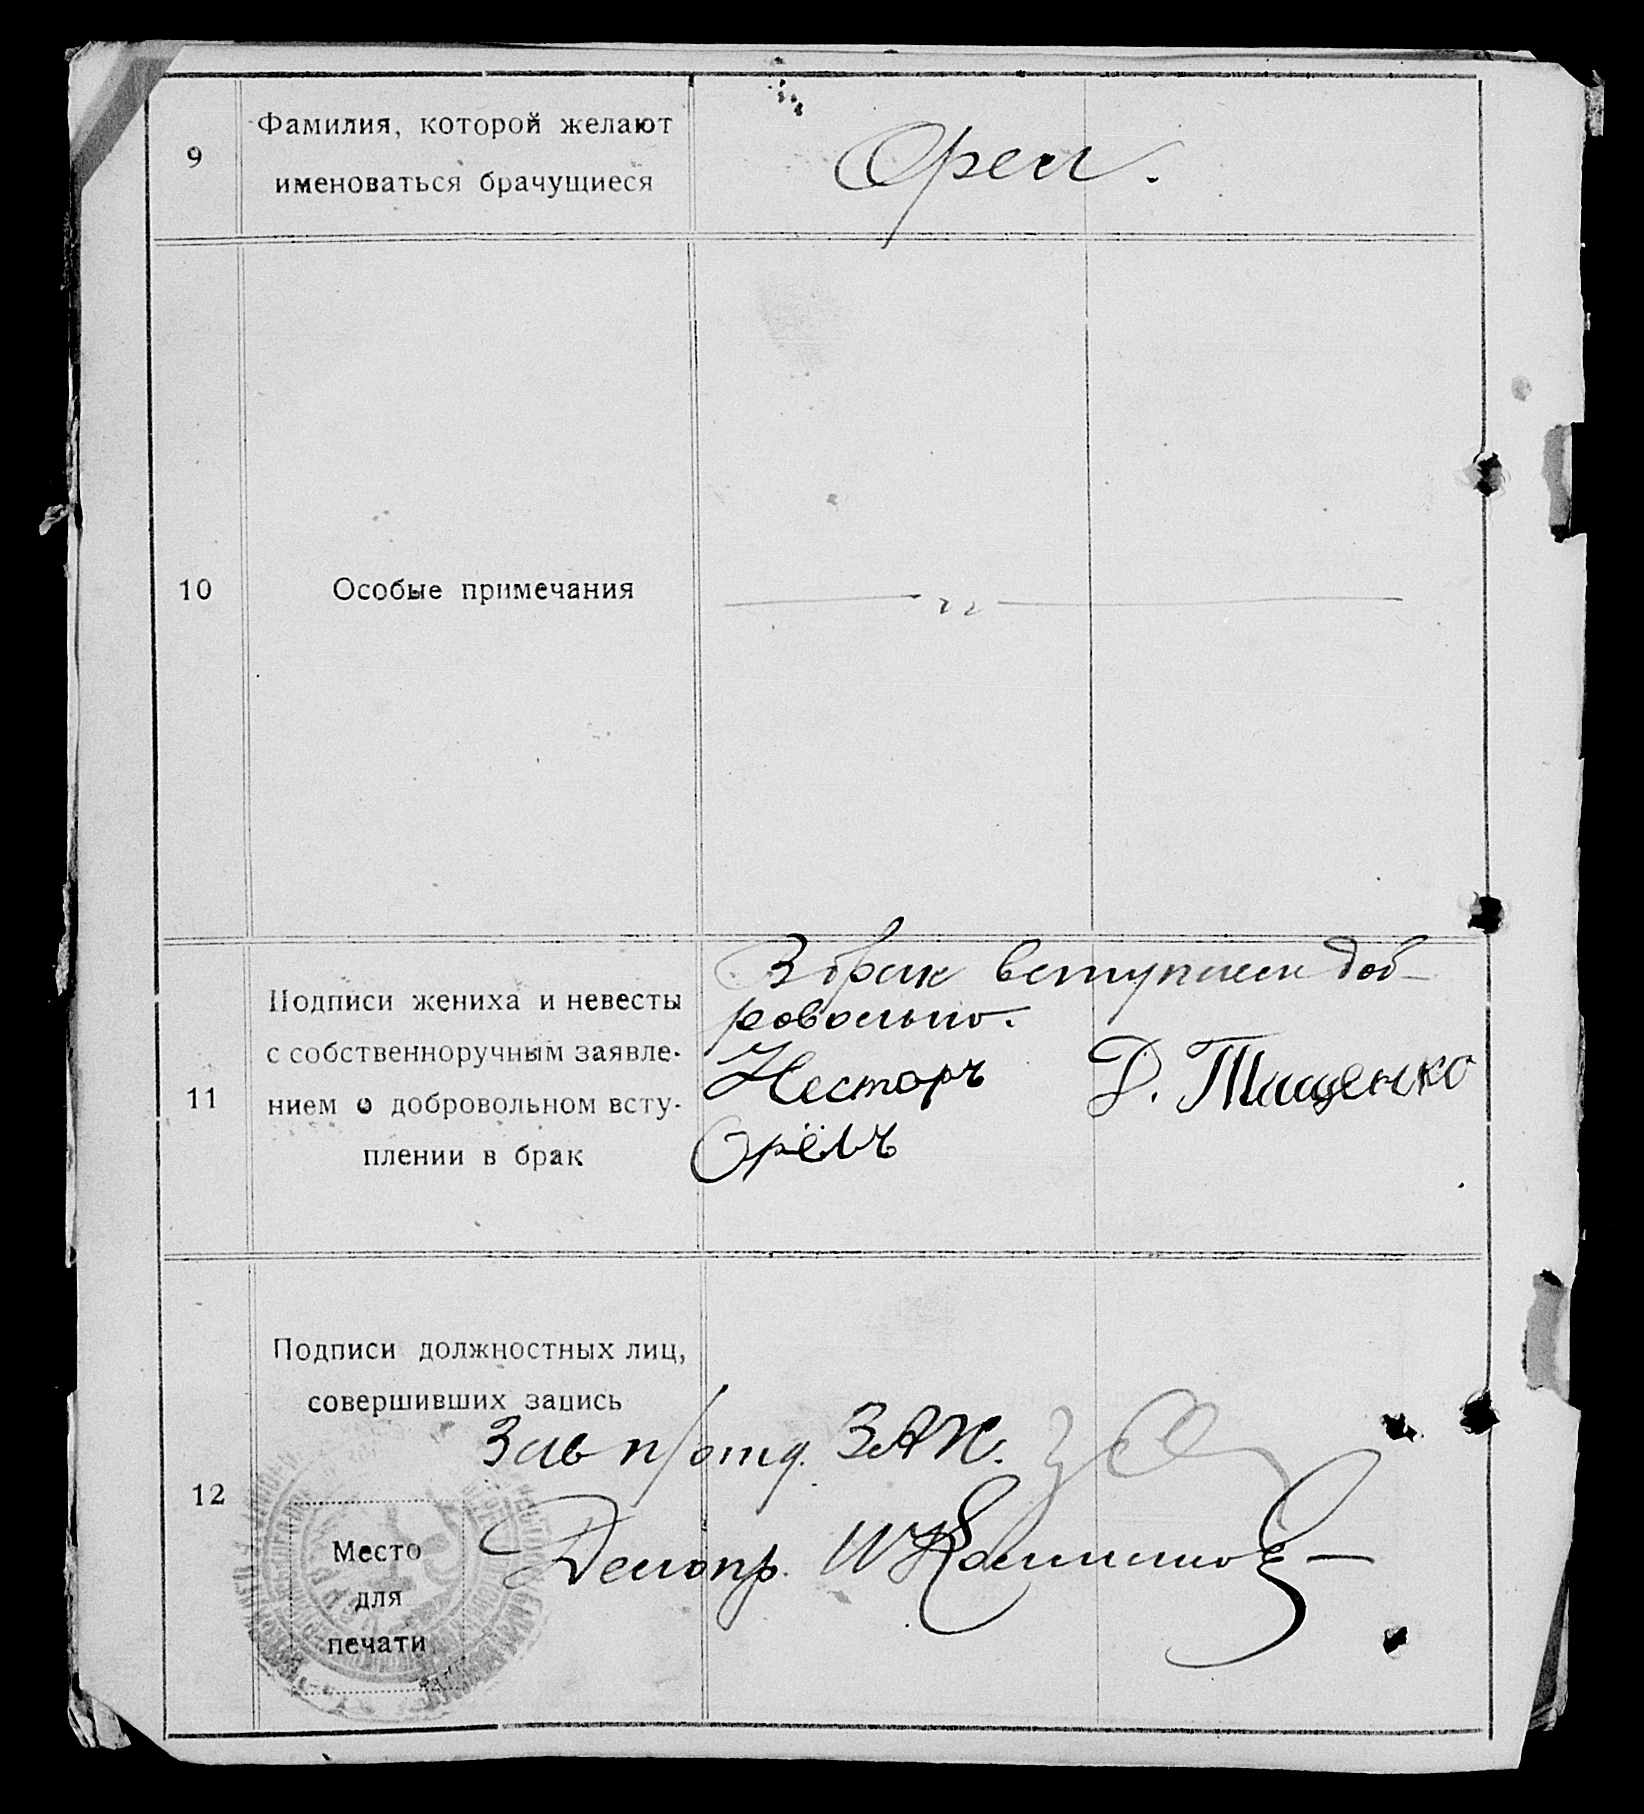 9
Фамилия, которой желают
именоваться брачущиеся
Орел.
10
Особые примечания
11
Подписи жениха и невесты
с собственноручным заявле-
нием о добровольном всту-
плении в брак
В брак вступаем доб-
ровольно.
Несторъ
Орёлъ
Д. Тищенко
12
Подписи должностных лиц,
совершивших запись
Зав п/отд. ЗАК.
Делопр.
Место
для
печати